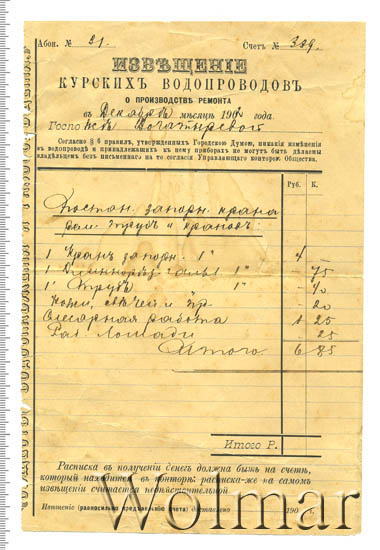 Абон. № 31. Счетъ № 389.
ИЗВѢЩЕНІЕ
КУРСКИХЪ ВОДОПРОВОДОВЪ
О ПРОИЗВОДСТВѢ РЕМОНТА
въ Декабрѣ мѣсяцѣ 1902 года.
Госпо жѣ
Согласно § 6 правилъ, утвержденныхъ Городскою Думою, никакія измѣненія
въ водопроводѣ и принадлежащихъ къ нему приборахъ не могутъ быть дѣлаемы
владѣльцемъ безъ письменнаго на то согласія Управляющаго конторою Общества.
Руб. К.
Постан. запорн. крана
рем. трубъ и крановъ:
1 Кранъ запорн. 1" 4 -
1 1" - 75
1' Трубъ 1" - 40
Кожи, свѣчей и пр - 20
Слесарная работа 1 25
Раб. лошади - 25
Итого 6 85
Итого Р.
Расписка въ полученіи денегъ должна быть на счетѣ,
который находится въ конторѣ: расписка-же на самомъ
извѣщеніи считается недѣйствительной
Извѣщеніе (равносильно предъявленію счета) доставлено 190 г.
Wolmar